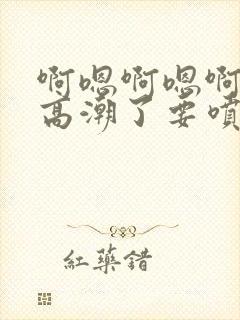 啊嗯啊嗯啊
高潮了要噴
紅藥錯